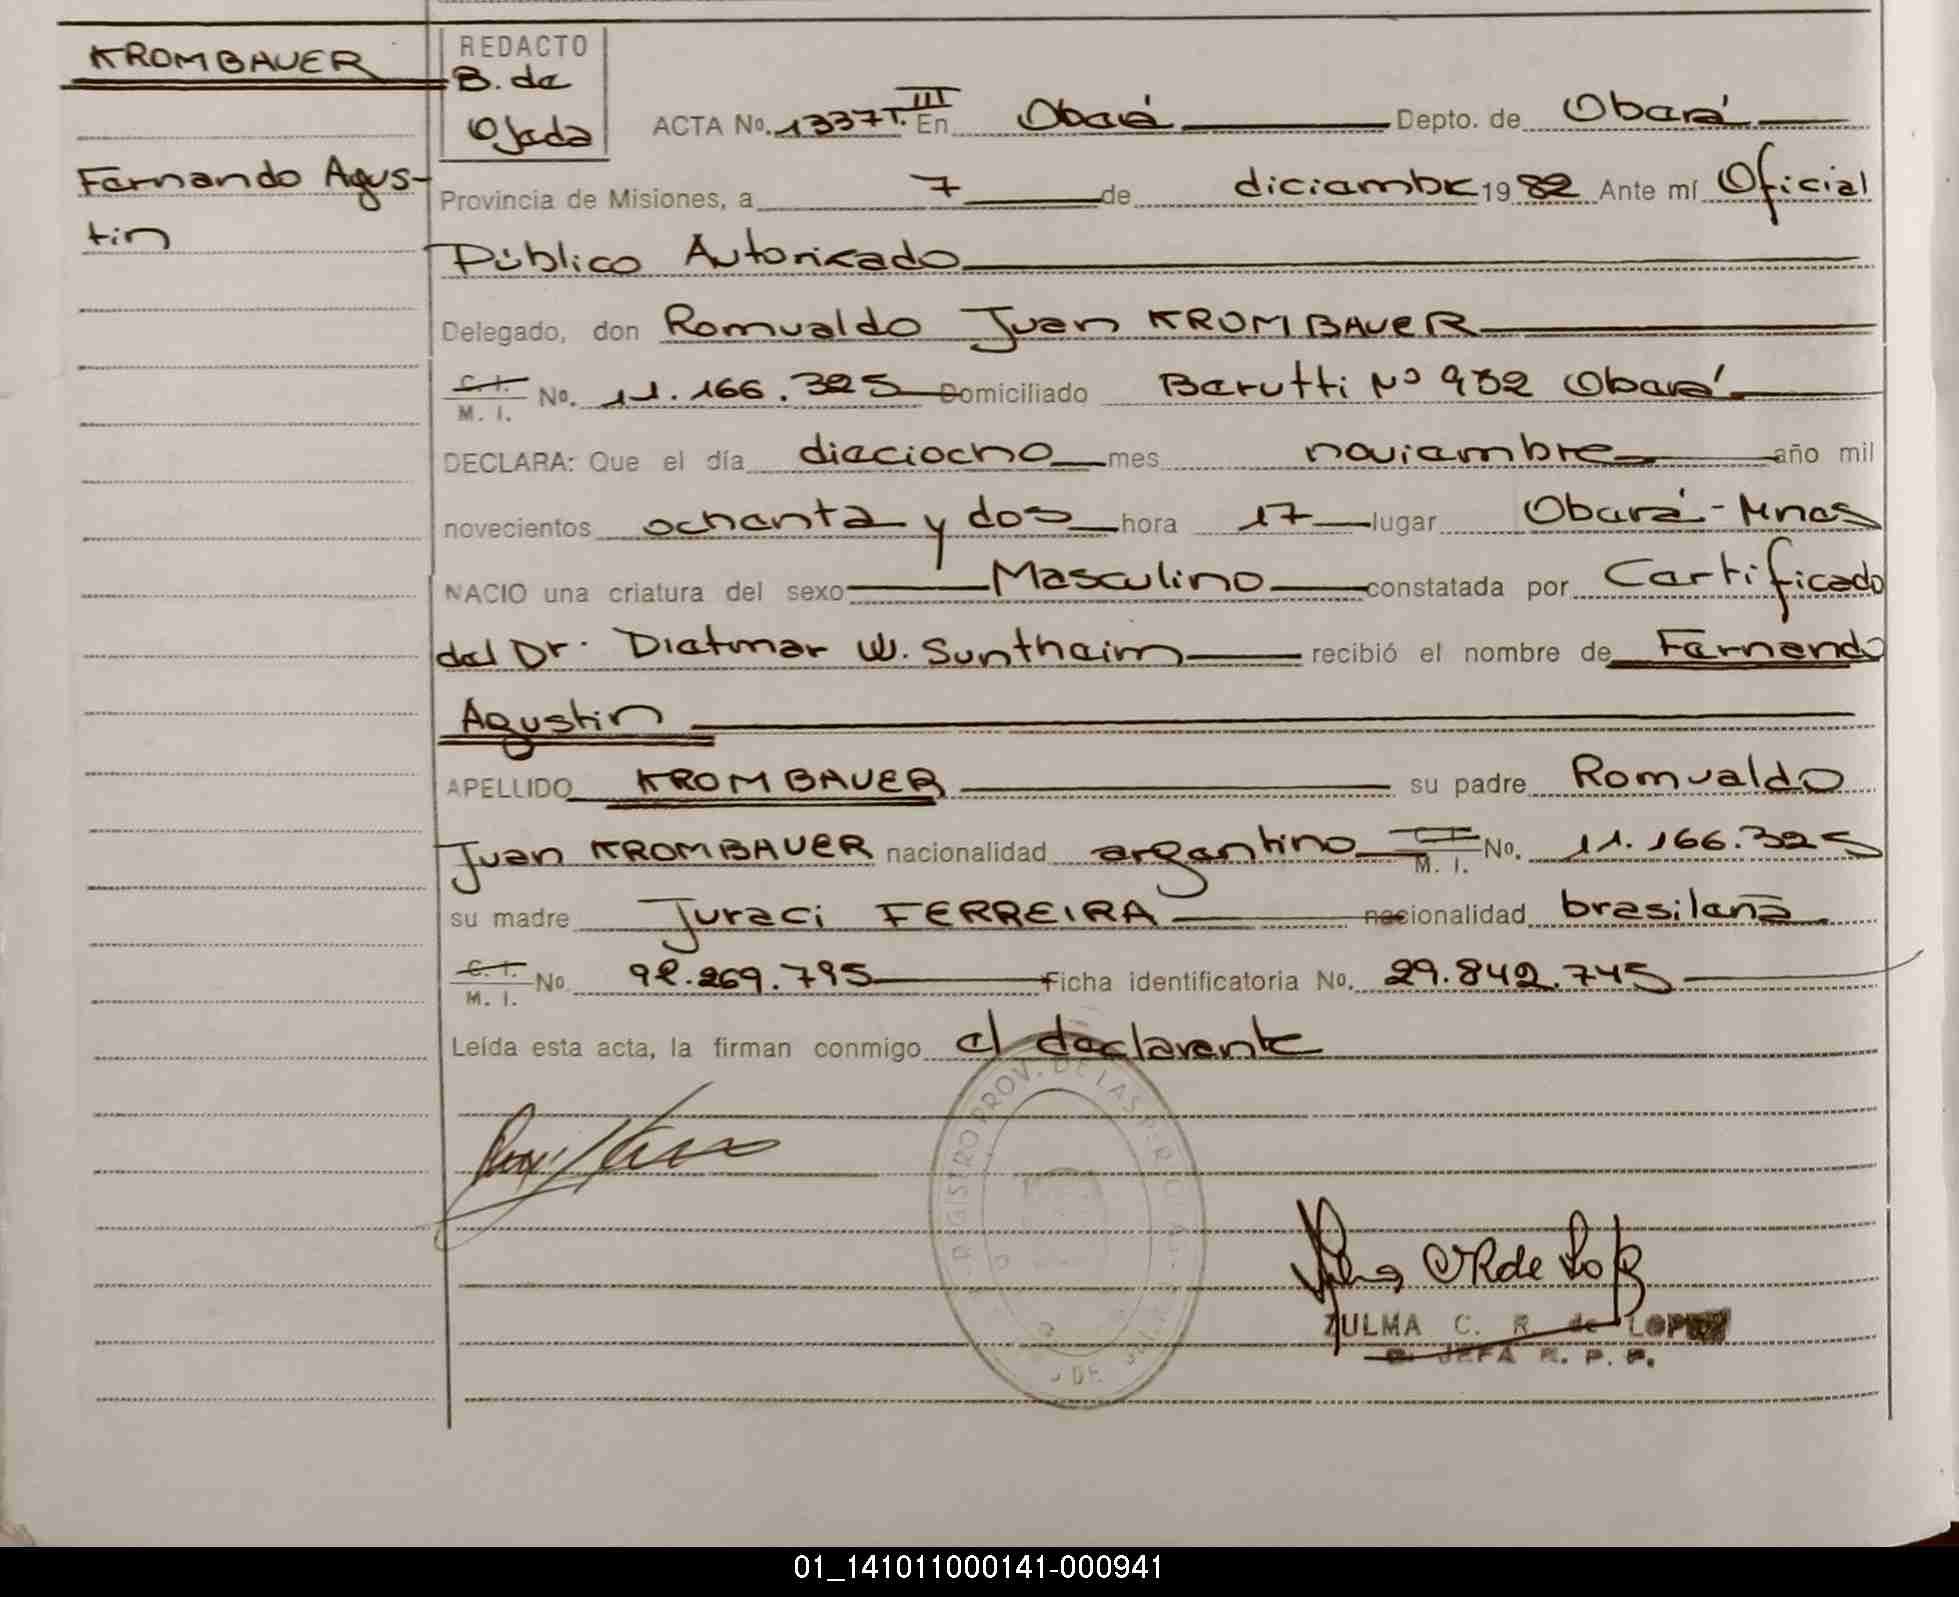 KROMBAUER
Fernando Agus-
tin
REDACTO
B. de
Ojeda
ACTA No. 1337 T. III En Oberá Depto. de Oberá
Provincia de Misiones, a 7 de diciembre 1982 Ante mí Oficial
Público Autorizado
Delegado, don Romualdo Juan KROMBAUER
C. I. M. I. No. 11.166.325 Domiciliado Berutti Nº 932 Oberá
DECLARA: Que el día dieciocho mes noviembre año mil
novecientos ochenta y dos hora 17 lugar Oberá - Mnes
NACIO una criatura del sexo Masculino constatada por Certificado
del Dr. Dietmar W. Suntheim recibió el nombre de Fernando
Agustin
APELLIDO KROMBAUER su padre Romualdo
Juan KROMBAUER nacionalidad argentino C. I. M. I. No. 11.166.325
su madre Juraci FERREIRA nacionalidad brasilena
C. I. M. I. No 92.269.795 Ficha identificatoria No. 29.842.745
Leída esta acta, la firman conmigo el declarante
REGISTRO PROV. DE LAS PER
DE
ZULMA C. R. de LOPEZ
JEFA R. P. P.
01_141011000141-000941